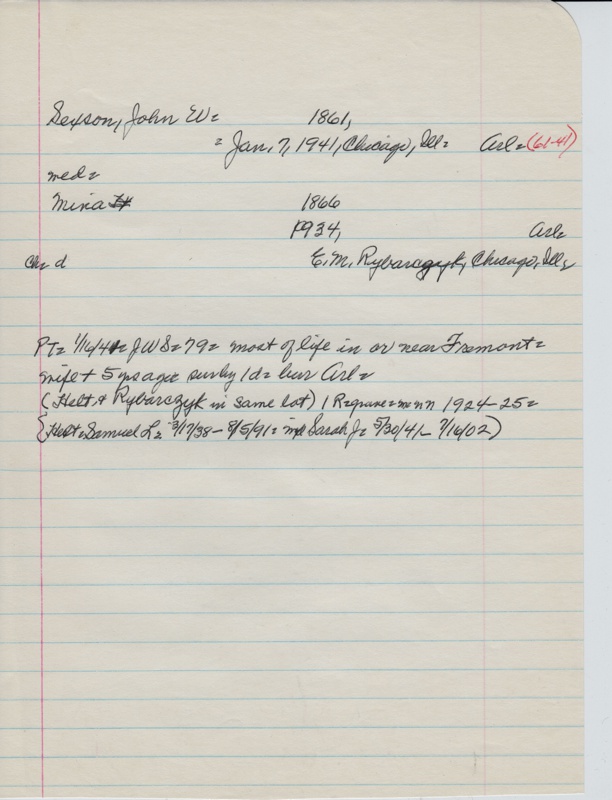 Sexson, John W= 1861,
= Jan. 7, 1941, Chicago, Ill= Arl= (61-41)
med=
Mina 1866
1934, Arl=
Ch= d E. M. Rybarczyk, Chicago, Ill,
PT= 1/16/41= JWS= 79= most of life in or near Fremont=
wife + 5 yrs ago= surv by 1d= bur Arl=
(Helt + Rybarczyk in same lot) 1 R=grave= 1924-25=
(Helt= Samuel L= 3/17/38- 8/5/91= Sarah J= 5/30/41- 7/16/02)